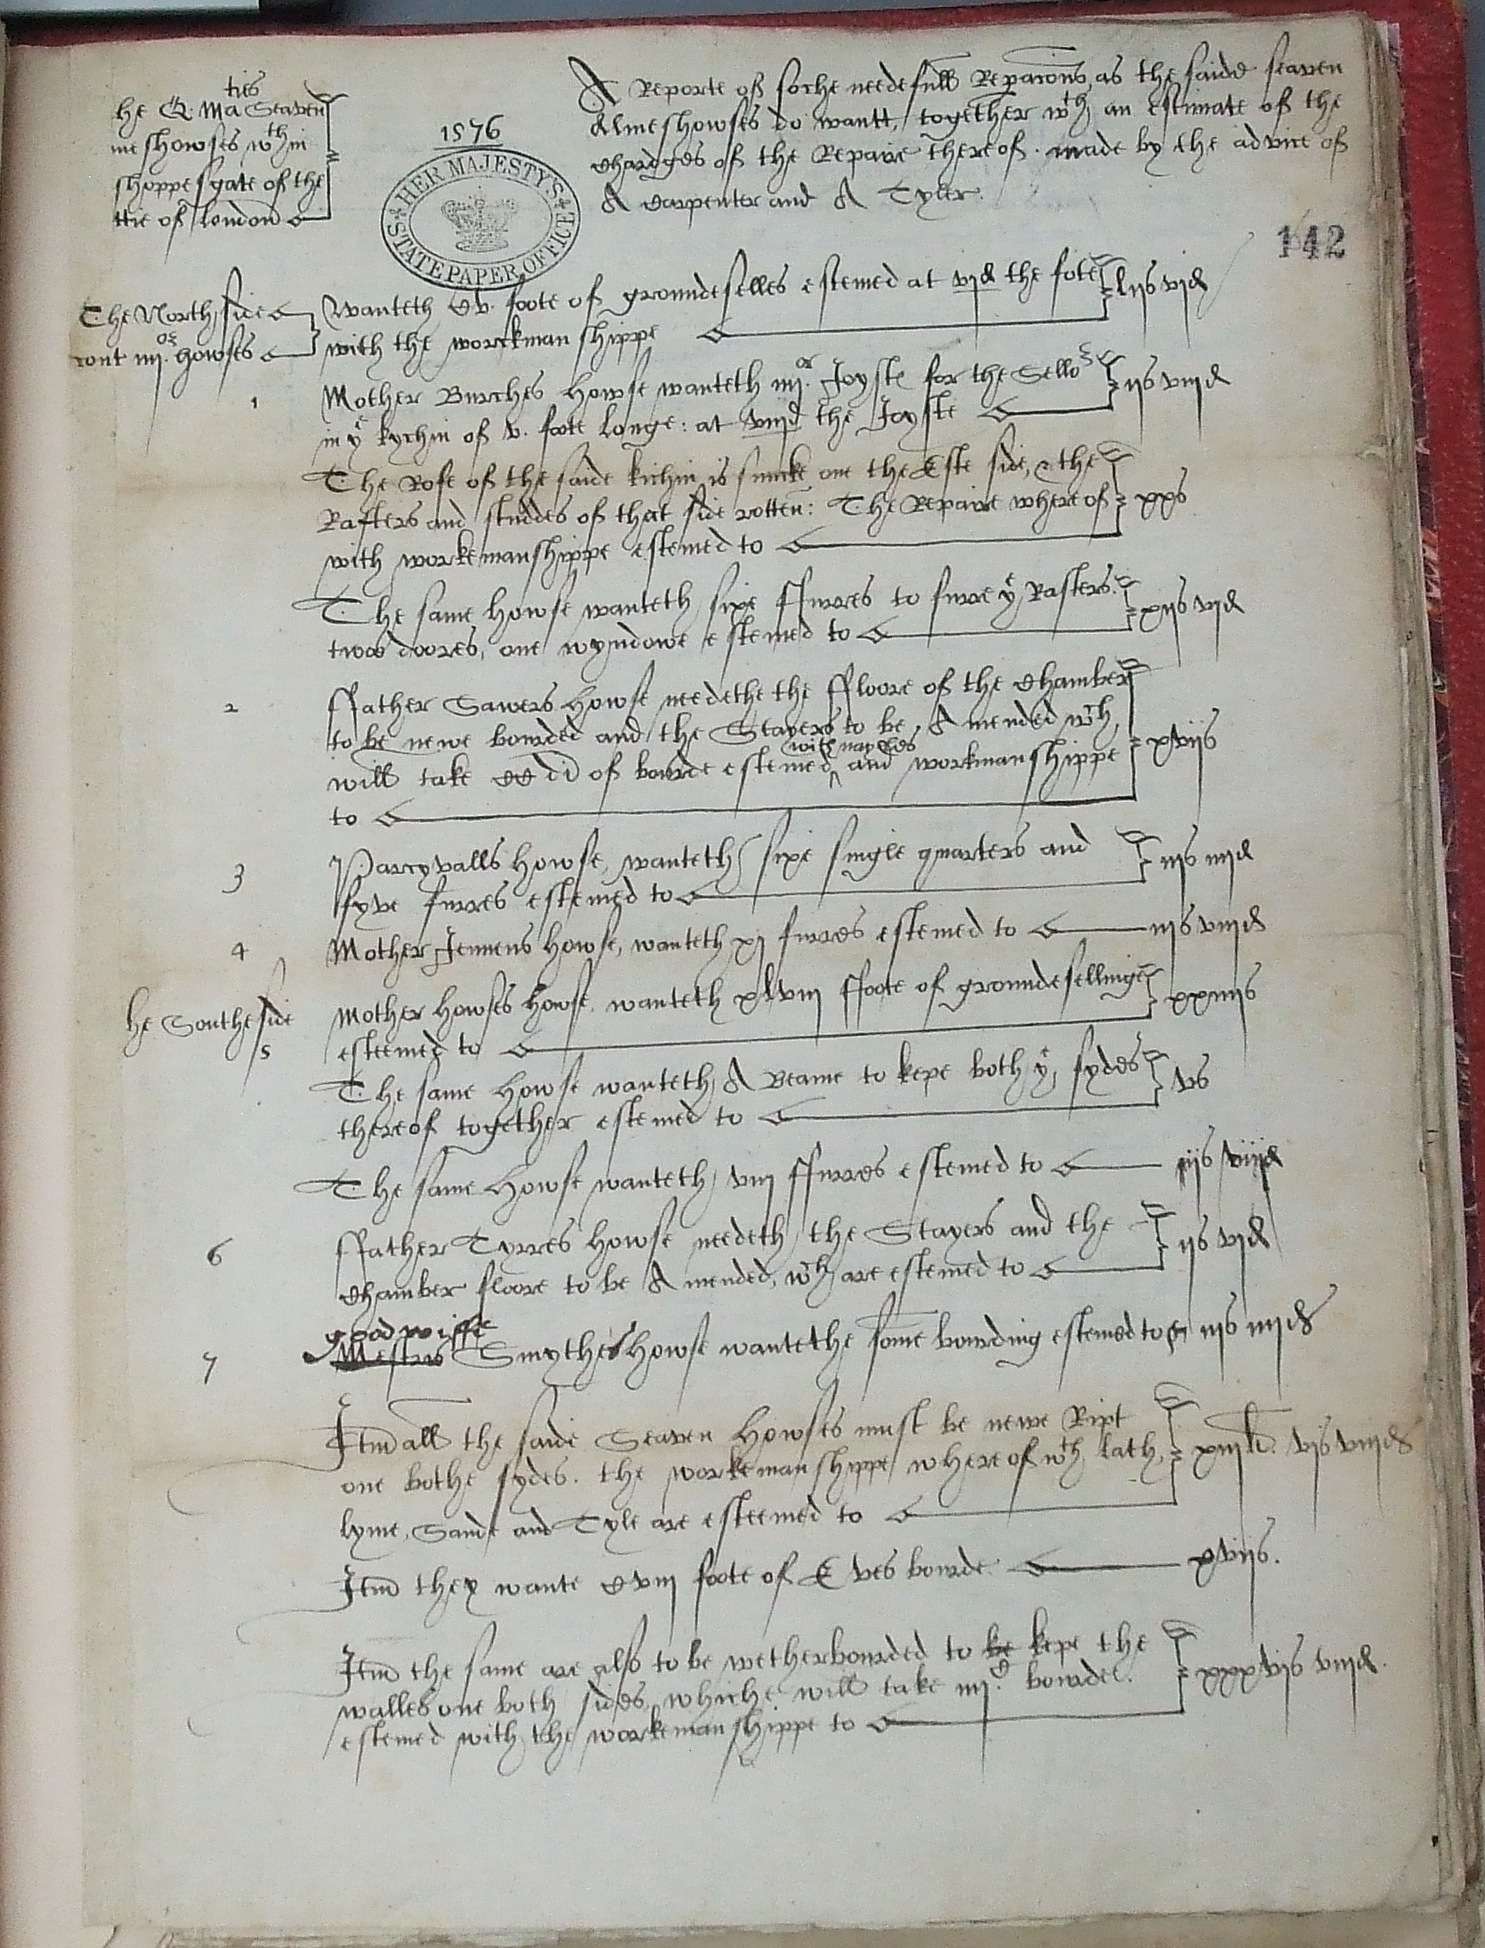 ties
he Q. Ma Seaven
me showses wth in
shoppesgate of the
ttie of london
1576
HER MAJESTY'S
STATE PAPER OFFICE
A Reporte of soche needefull Reparacons, as the saide seaven
Almeshowses do wantt, together wth an estimate of the
chardges of the Repaire thereof. made by the advice of
A carpenter and A Tyler.
142
The North side
cont iiijor. howses
Wanteth Cv. foote of groundeselles estemed at vjd the fote
with the worckmanshippe
lijs vjd
1
Mother Burches Howse wanteth iiijor. Joyste for the Sello
in ye kychin of v. foote longe: at viijd the Joyste
ijs viijd
The Rofe of the saide kichin is suncke one the Este side, & the
Rafters and studdes of that side rotten: The Repaire whereof
with workemanshippe estemed to
xxs
The same howse wanteth sixe ffurres to furre ye Rafters.
twoo doores, one wyndowe estemed to
xijs vjd
2
ffather Sawers howse needethe the ffloore of the Chamber
to be newe bourded and the Stayers to be Amended wch
with nayles
will take CC di of bourde estemed and workmanshippe
to
xviis
3
Parcyvalls howse, wanteth sixe single quarters and
fyve furres estemed to
iijs iiijd
4
Mother Jennens howse, wanteth xj furres estemed to
iijs viijd
he Southe side
5
Mother Howses howse, wanteth xlviij ffoote of groundesellinge
esteemed to
xxiiijs
The same Howse wanteth A Beame to kepe both ye sydes
thereof together estemed to
vs
The same Howse wanteth viij ffurres estemed to
ijs viijd
6
ffather Tyrres howse needeth the Stayers and the
Chamber floore to be Amended, wch are estemed to
ijs vjd
good wiffe
7
Mestris Smythes howse wantethe some bourding estemed to
iijs iiijd
Itm all the saide Seaven Howses must be newe Ript
one bothe sydes. the workemanshippe whereof wth lath,
lyme, Sande and Tyle are esteemed to
xiijli. vjs viijd
Itm they wante Cviij foote of Eves bourde
xviis.
Itm the same are also to be wetherbourded to be kepe the
walles one both sides, whiche will take iiijC. bourde.
estemed with the workemanshippe to
xxxvjs viijd.